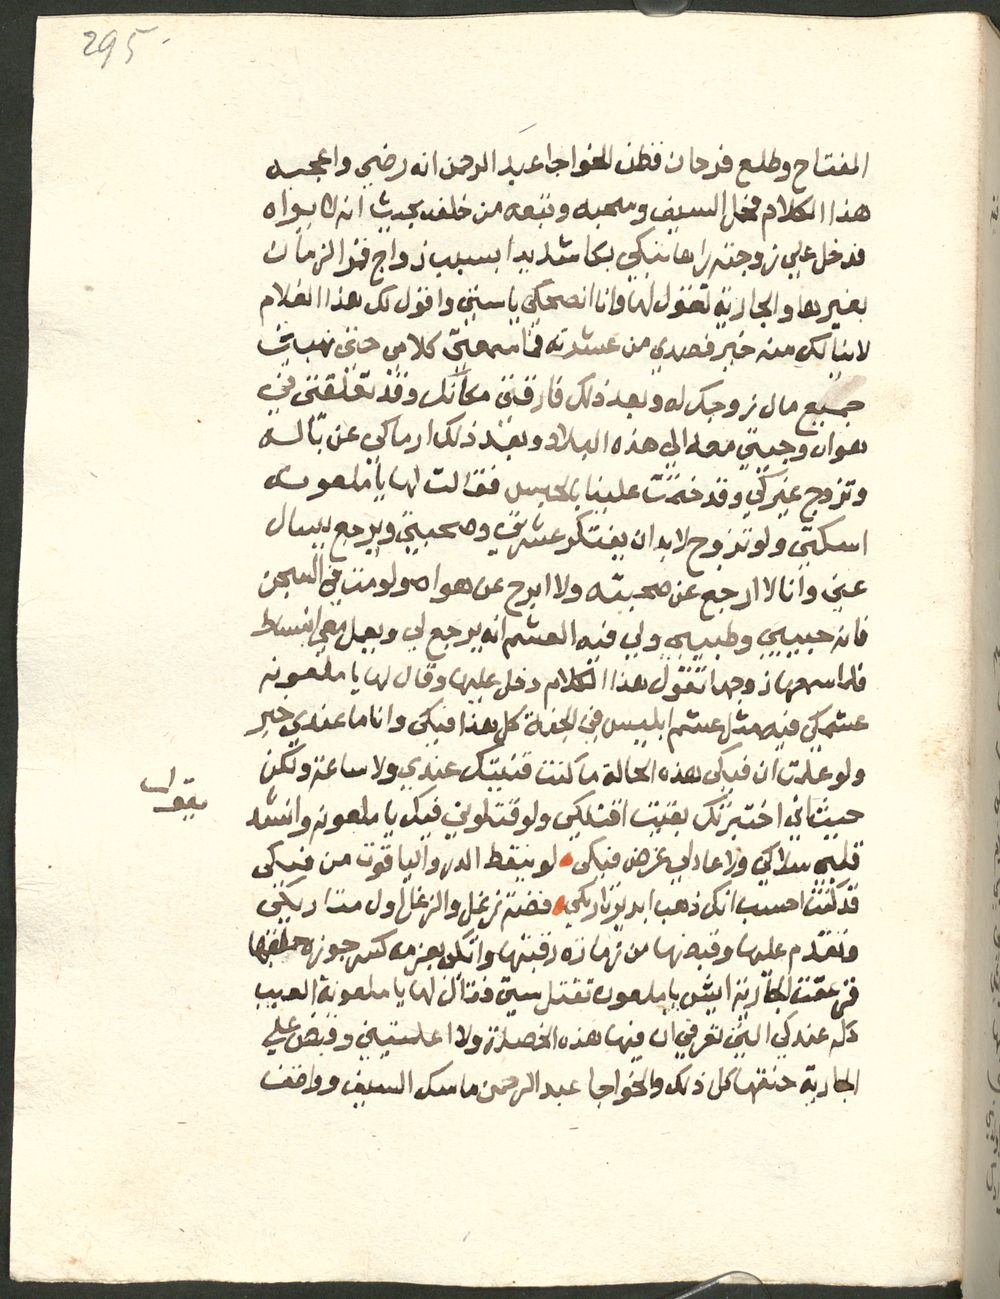 295
المفتاح وطلع فرحان فظن الخواجا عبد الرحمن انه رضي واعجبه
هذا الكلام فحمل السيف وسحبه وتبعه من خلفه بحيث انه لا يراه
فدخل علي زوجته راها تبكي بكا شديدا بسبب زواج قمر الزمان
بغيرها والجارية تقول لها وانا انصحكي يا ستي واقول لك هذا الغلام
لا ينالك منه خير فصدي من عشرته فما سمعتي كلامي حتي نهبتي
جميع مال زوجك له وبعد ذلك فارقتي مكانك وقد تعلقتي في
هواه وجيتي معه الي هذه البلاد وبعد ذلك ارماكي عن باله
وتزوج غيركي وقد علينا بالحبس فقالت لها يا ملعونه
اسكتي ولو تزوج لا بد ان يفتكر عشرتي وصحبتي ويرجع يسال
عني وانا لا ارجع عن صحبته ولا ابرح عن هواه ولو مت في السجن
فانه حبيبي وطبيبي ولي فيه العشم انه يرجع لي ويعمل معي انبساط
فلما سمعها زوجها تقول هذا الكلام دخل عليها وقال لها يا ملعونه
عشمكي فيه مثل عشم ابليس في الجنة كل هذا فيكي وانا ما عندي خبر
ولو علمت ان فيكي هذه الحالة ما كنت قنيتك عندي ولا ساعة ولكن
حيث اني اختبرتك بقيت اقتلكي ولو قتلوني فيك يا ملعونه وانشد
يقول
قلبي سلاكي ولا عاد لي غرض فيكي لو ينقط الدر والياقوت من فيكي
قد كنت احسب انك ذهب ابريز فضة زغل والزغل اول
وتقدم عليها وقبضها من زمارة رقبتها واتكي بعزمه كسر جوزة حلقها
فزعقت الجارية ايش يا ملعون تقتل ستي فقال لها يا ملعونة العيب
كله عندكي التي تعرفي ان فيها هذه الخصلة ولا اعلمتيني وقبض علي
الجارية خنقها كل ذلك والخواجا عبد الرحمن ماسك السيف وواقف